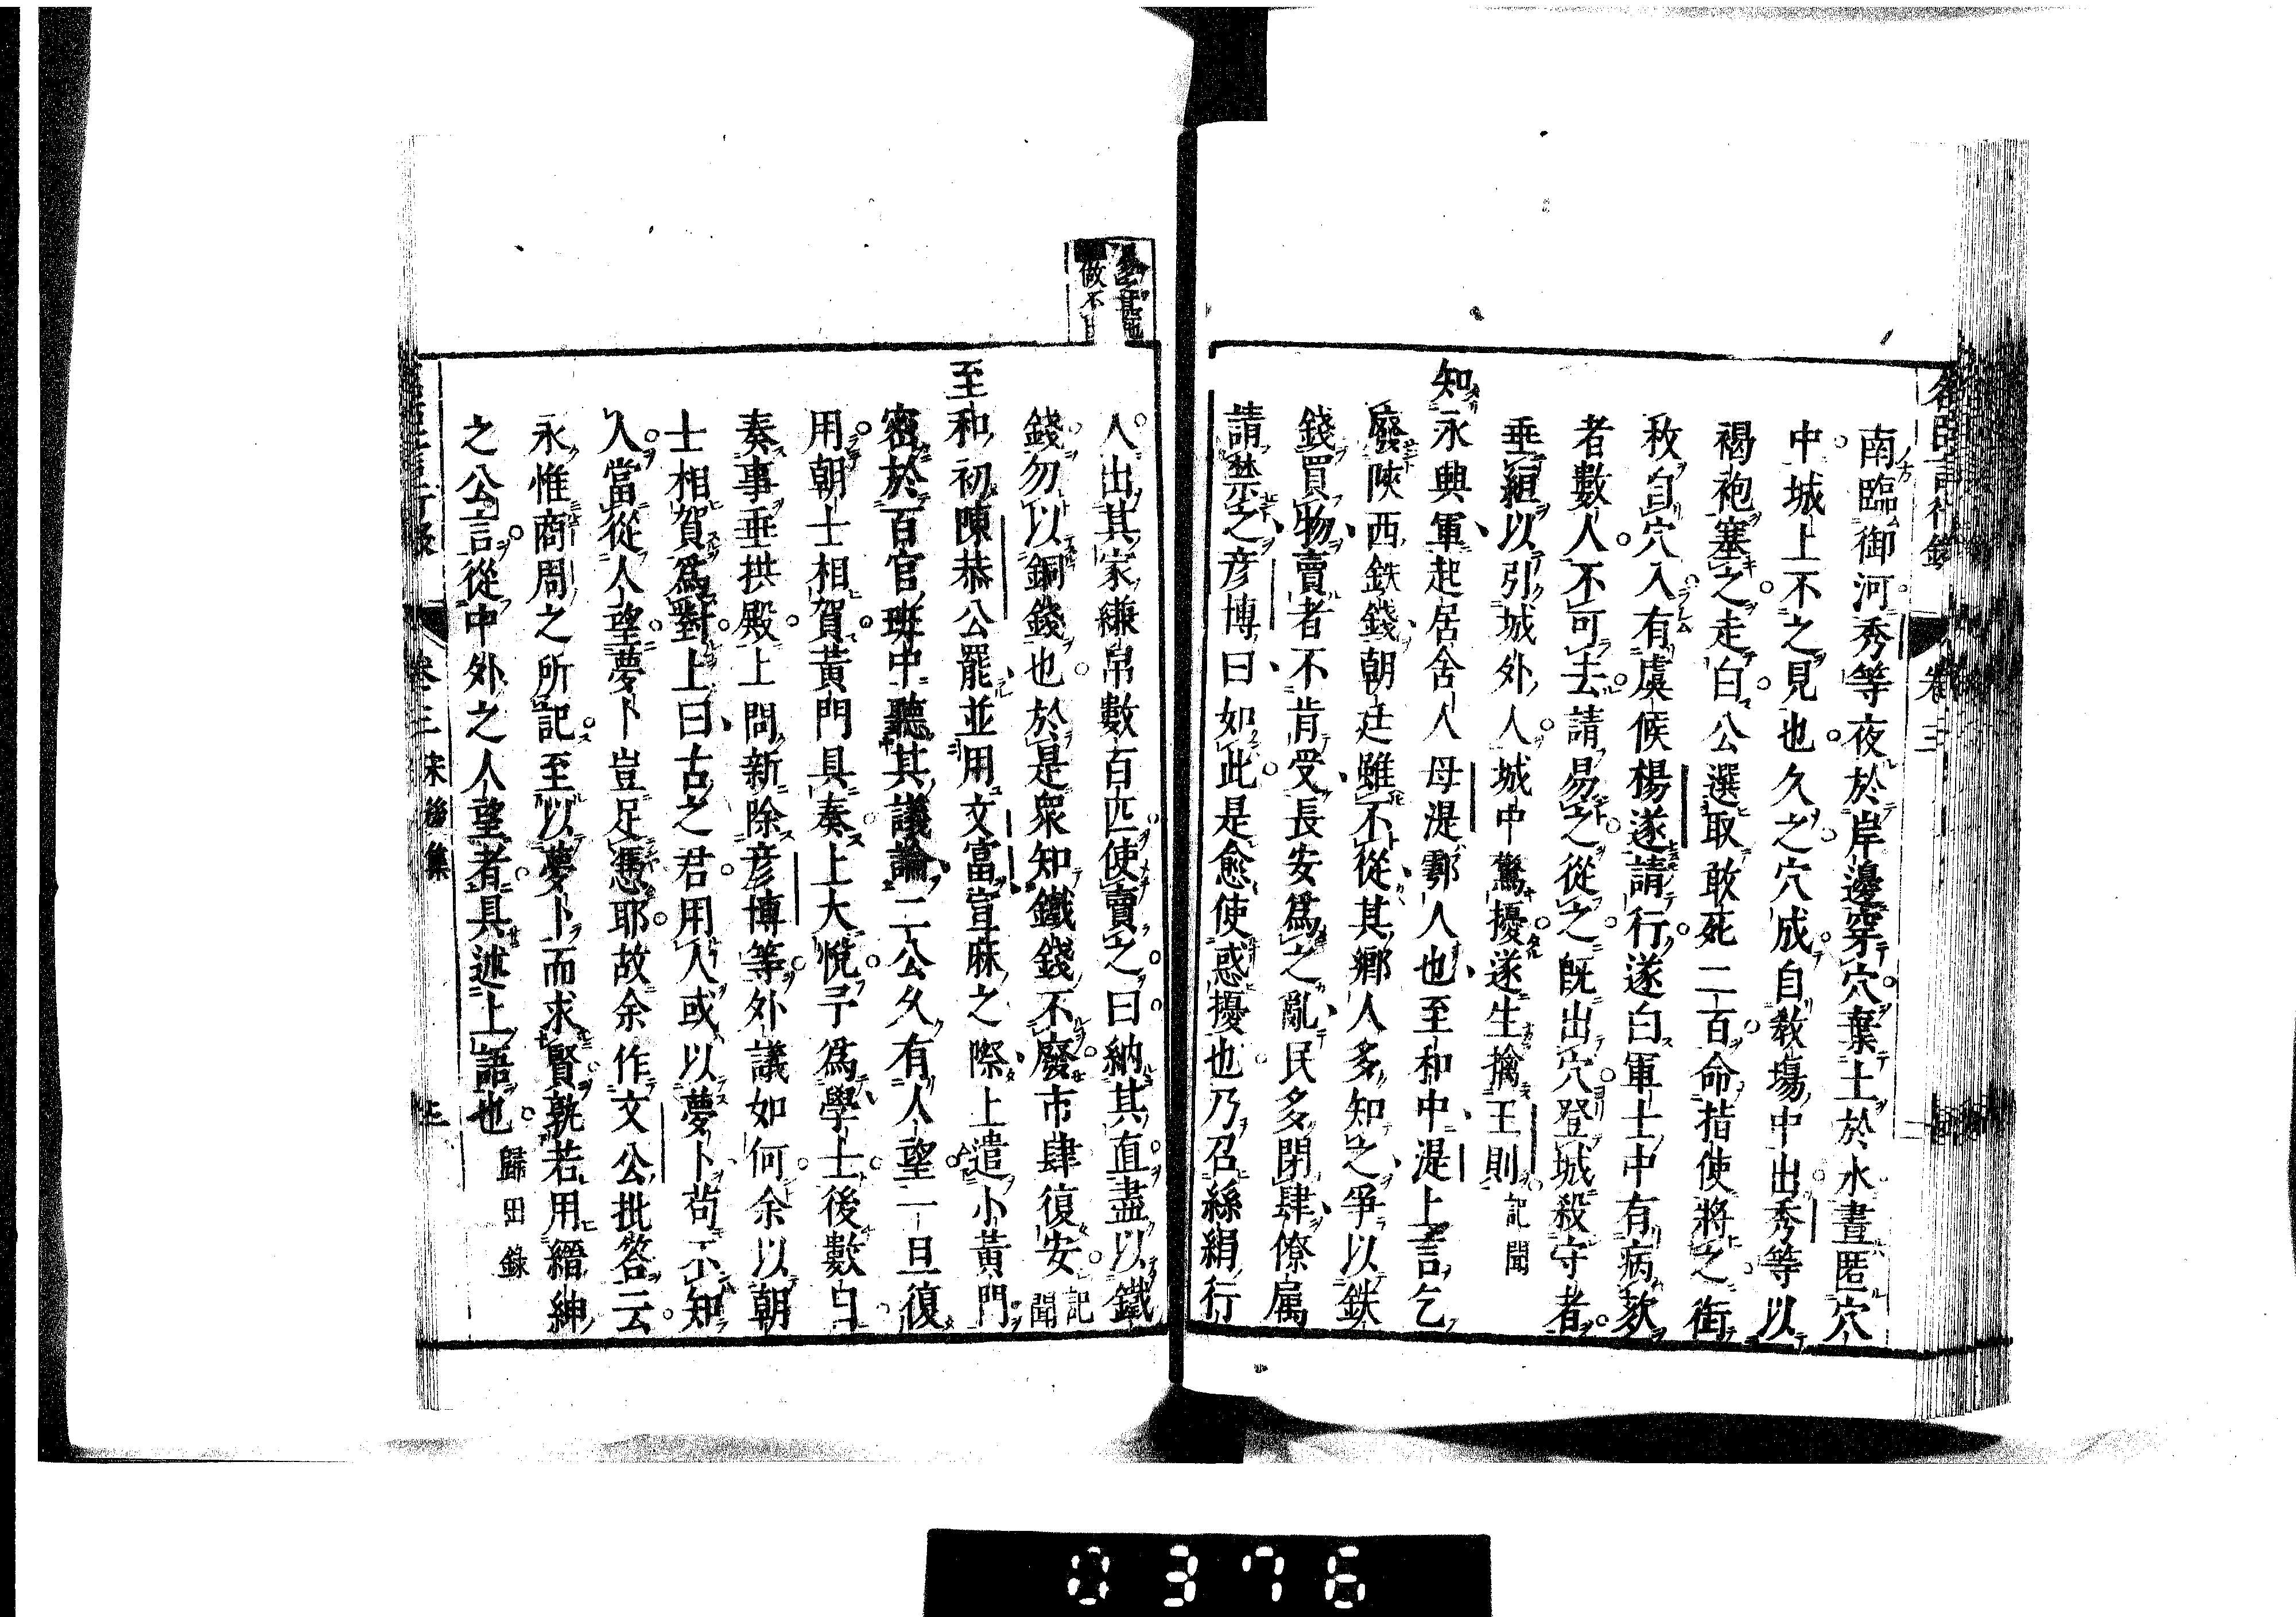 名臣言行錄 卷三
南臨御河秀等夜於岸邊穿穴棄土於水晝匿穴
中城上不之見也久之穴成自敎場中出秀等以
褐袍塞之走白公選取敢死二百命指使將之銜
枚自穴入有虞候楊遂請行遂白軍士中有病欬
者數人不可去請易之從之既出穴登城殺守者
垂絙以引城外人城中驚擾遂生擒王則 記聞
知永興軍起居舍人母湜鄠人也至和中湜上言乞
廢陝西鉄錢朝廷雖不從其鄉人多知之爭以鉄
錢買物賣者不肯受長安爲之亂民多閉肆僚属
請禁之彦博曰如此是愈使惑擾也乃召絲絹行
人出其家縑帛數百匹使賣之曰納其直盡以鐵
錢勿以銅錢也於是衆知鐵錢不廢市肆復安 記聞
至和初陳恭公罷並用文富宣麻之際上遣小黃門
密於百官班中聽其議論二公久有人望一旦復
用朝士相賀黃門具奏上大悅予爲學士後數日
奏事垂拱殿上問新除彦博等外議如何余以朝
士相賀爲對上曰古之君用人或以夢卜苟不知
人當從人望夢卜豈足憑耶故余作文公批答云
永惟商周之所記至以夢卜而求賢孰若用縉紳
之公言從中外之人望者具述上語也 歸田錄
卷三 宋後集
0376